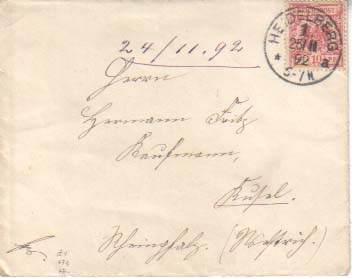 24/11.92
HEIDELBERG
1
92 a
5-7N
10
Herrn
Hermann Fritz
Kaufmann,
Kusel.
Rheinpfalz. (Westrich).